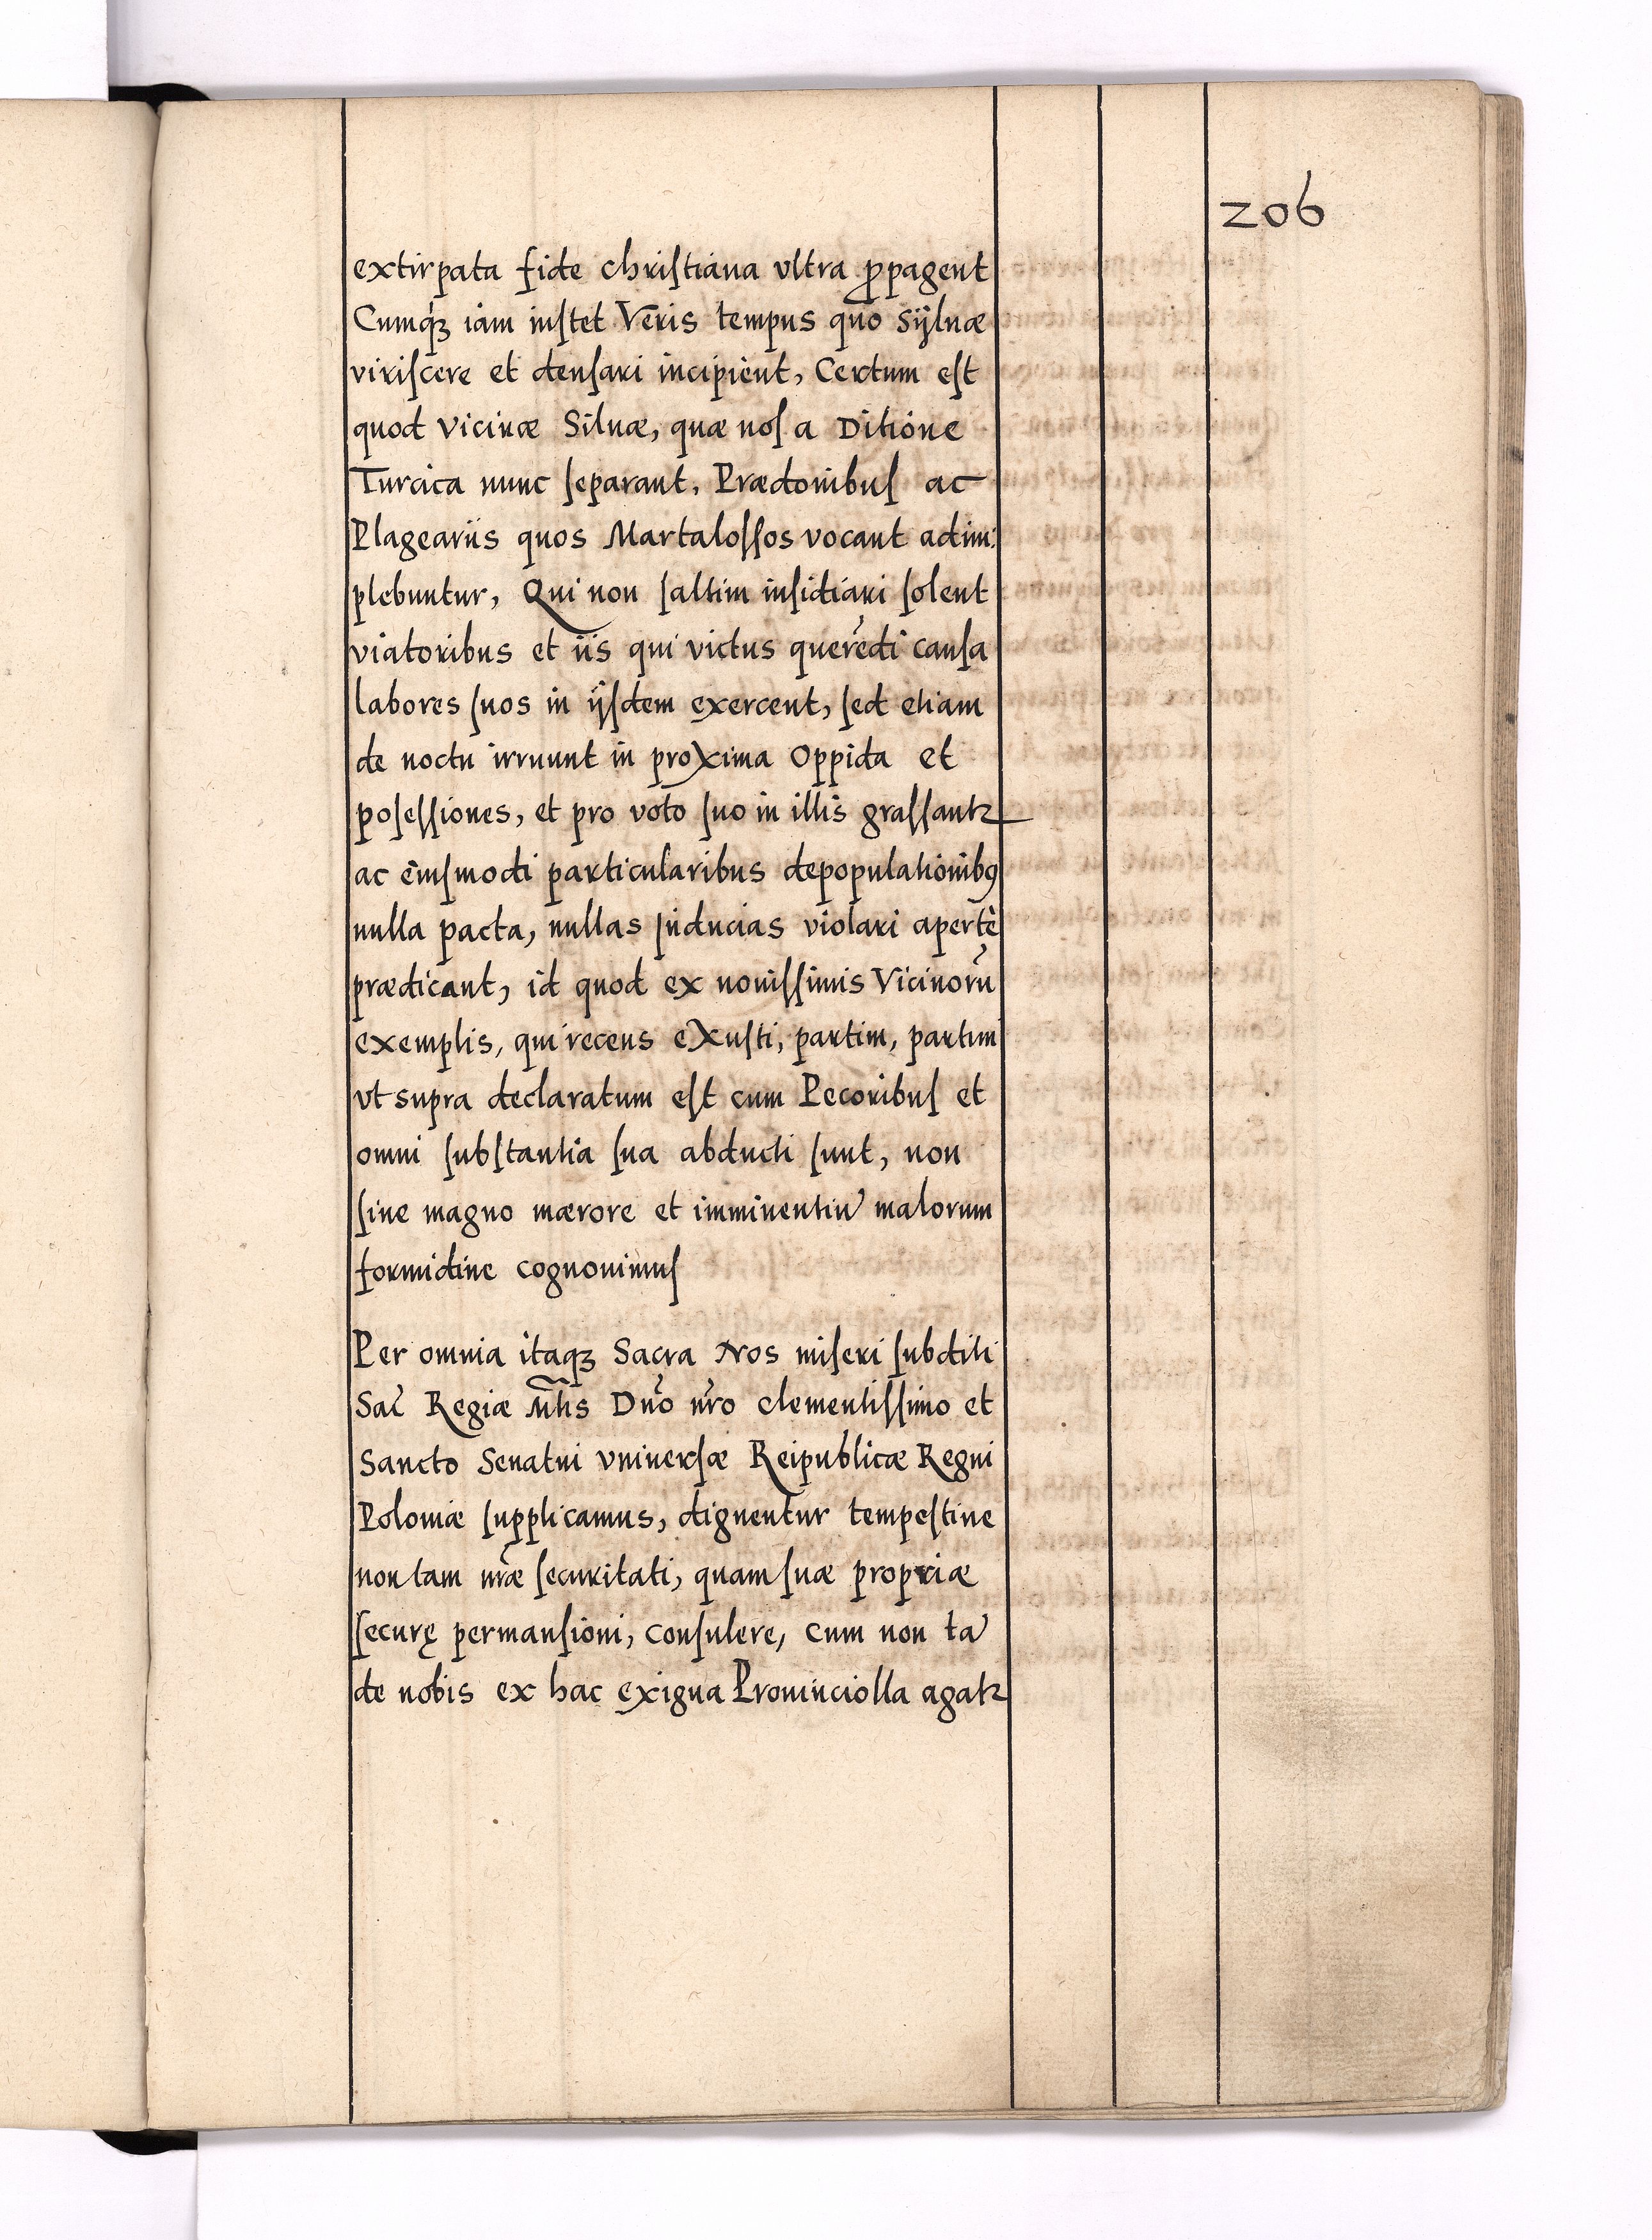 206
extirpata fide chriſtiana vltra ꝓpagent
Cumqꝫ iam inſtet Veris tempus quo Sÿluæ
viriſcere et denſari incipient, Certum eſt
quod vicinæ Siluæ, quæ noſ a Ditione
Turcica nunc ſeparant, Prædonibuſ ac
Plageariis quos Martaloſſos vocant adim:
plebuntur, Qui non ſaltim inſidiari ſolent
viatoribus et iis qui victus querēdi cauſa
labores ſuos in ijſdem exercent, ſed etiam
de noctu irruunt in proxima Oppida et
poſeſſiones, et pro voto ſuo in illis graſſantꝛ
ac eiuſmodi particularibus depopulationibꝰ
nulla pacta, nullas inducias violari apertè
prædicant, id quod ex nouiſſimis Vicinorū
exemplis, qui recens exuſti, partim, partim
vt supra declaratum eſt cum Pecoribuſ et
omni ſubſtantia ſua abducti ſunt, non
ſine magno mærore et imminentiū malorum
formidine cognouimuſ
Per omnia itaqꝫ Sacra Nos miſeri ſubditi
Sac̄ Regiæ M̄tis Dn̄o nr̄o clementiſſimo et
Sancto Senatui vniuerſæ Reipublicæ Regni
Poloniæ ſupplicamus, dignentur tempeſtiue
non tam nr̄æ ſecuritati, quam ſuæ propriæ
ſecurę permanſioni, conſulere, cum non tā
de nobis ex hac exigua Prouinciolla agatꝛ